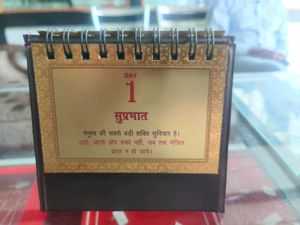 DAY
1
सुप्रभात
मनुष्य की सबसे बड़ी शक्ति सुविचार है।
उठो, जागो और रुको नहीं, जब तक मंजिल
प्राप्त न हो जाये।